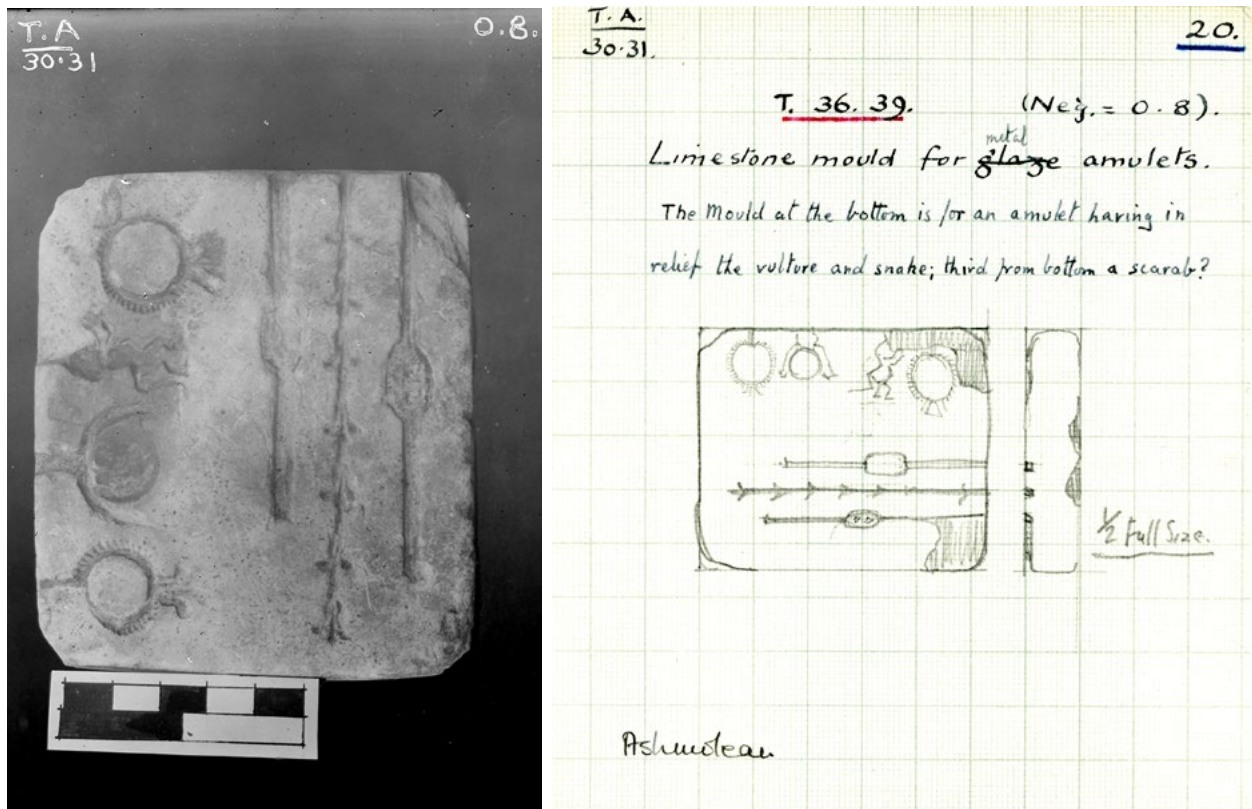 T.A
30.31
O.8.
T. A.
30.31.
20.
T. 36. 39. (Neg. = O.8).
metal
Limestone mould for glaze amulets.
The Mould at the bottom is for an amulet having in
relief the vulture and snake; third from bottom a scarab?
1/2 Full Size.
Ashmolean